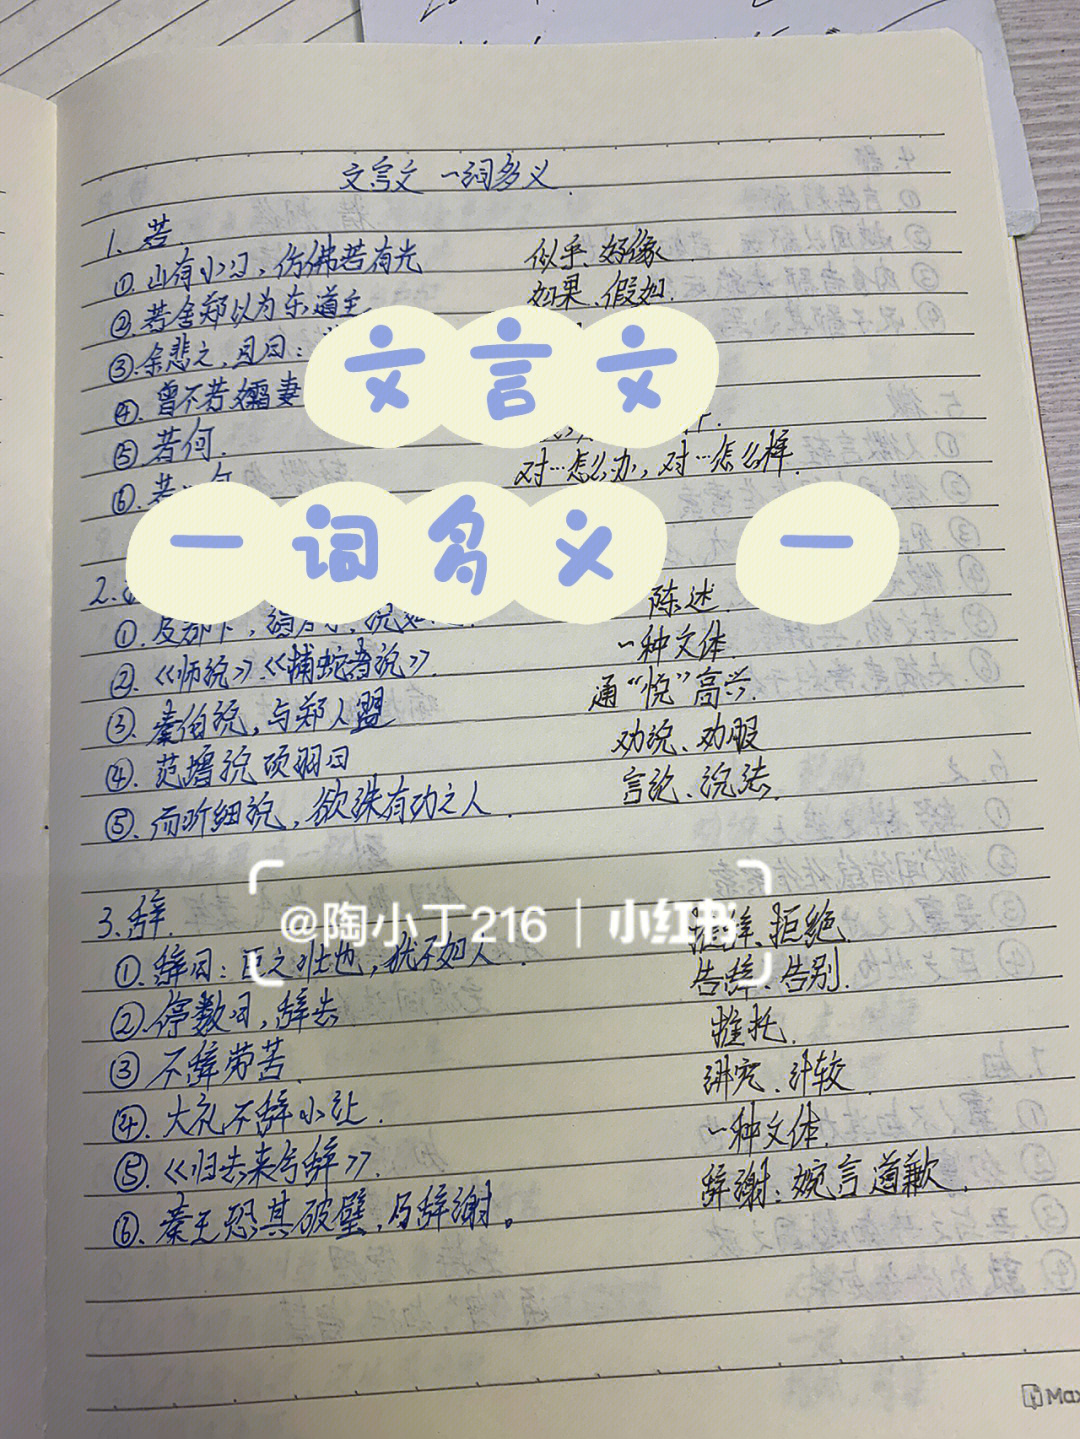 文言文 一词多义
1. 若.
①. 山有小口, 仿佛若有光 似乎、好像.
②. 若舍郑以为东道主 如果、假如.
③. 余悲之, 且曰:
④. 曾不若孀妻
⑤ 若何.
⑥. 若 对…怎么办, 对…怎么样.
文言文
一词多义 一
2.
①. 及郡下, 陈述.
②. 《师说》《捕蛇者说》. 一种文体.
③. 秦伯说, 与郑人盟 通“悦”高兴.
④. 范增说项羽曰 劝说、劝服
⑤. 而听细说, 欲诛有功之人. 言论、说法.
@陶小丁216 | 小红书
3. 辞.
①. 辞曰: 臣之壮也, 犹不如人. 推辞、拒绝.
②. 停数日, 辞去 告辞、告别.
③ 不辞劳苦. 推托.
④. 大礼不辞小让. 讲究、计较
⑤. 《归去来兮辞》. 一种文体.
⑥. 秦王恐其破璧, 乃辞谢。 辞谢: 婉言道歉.